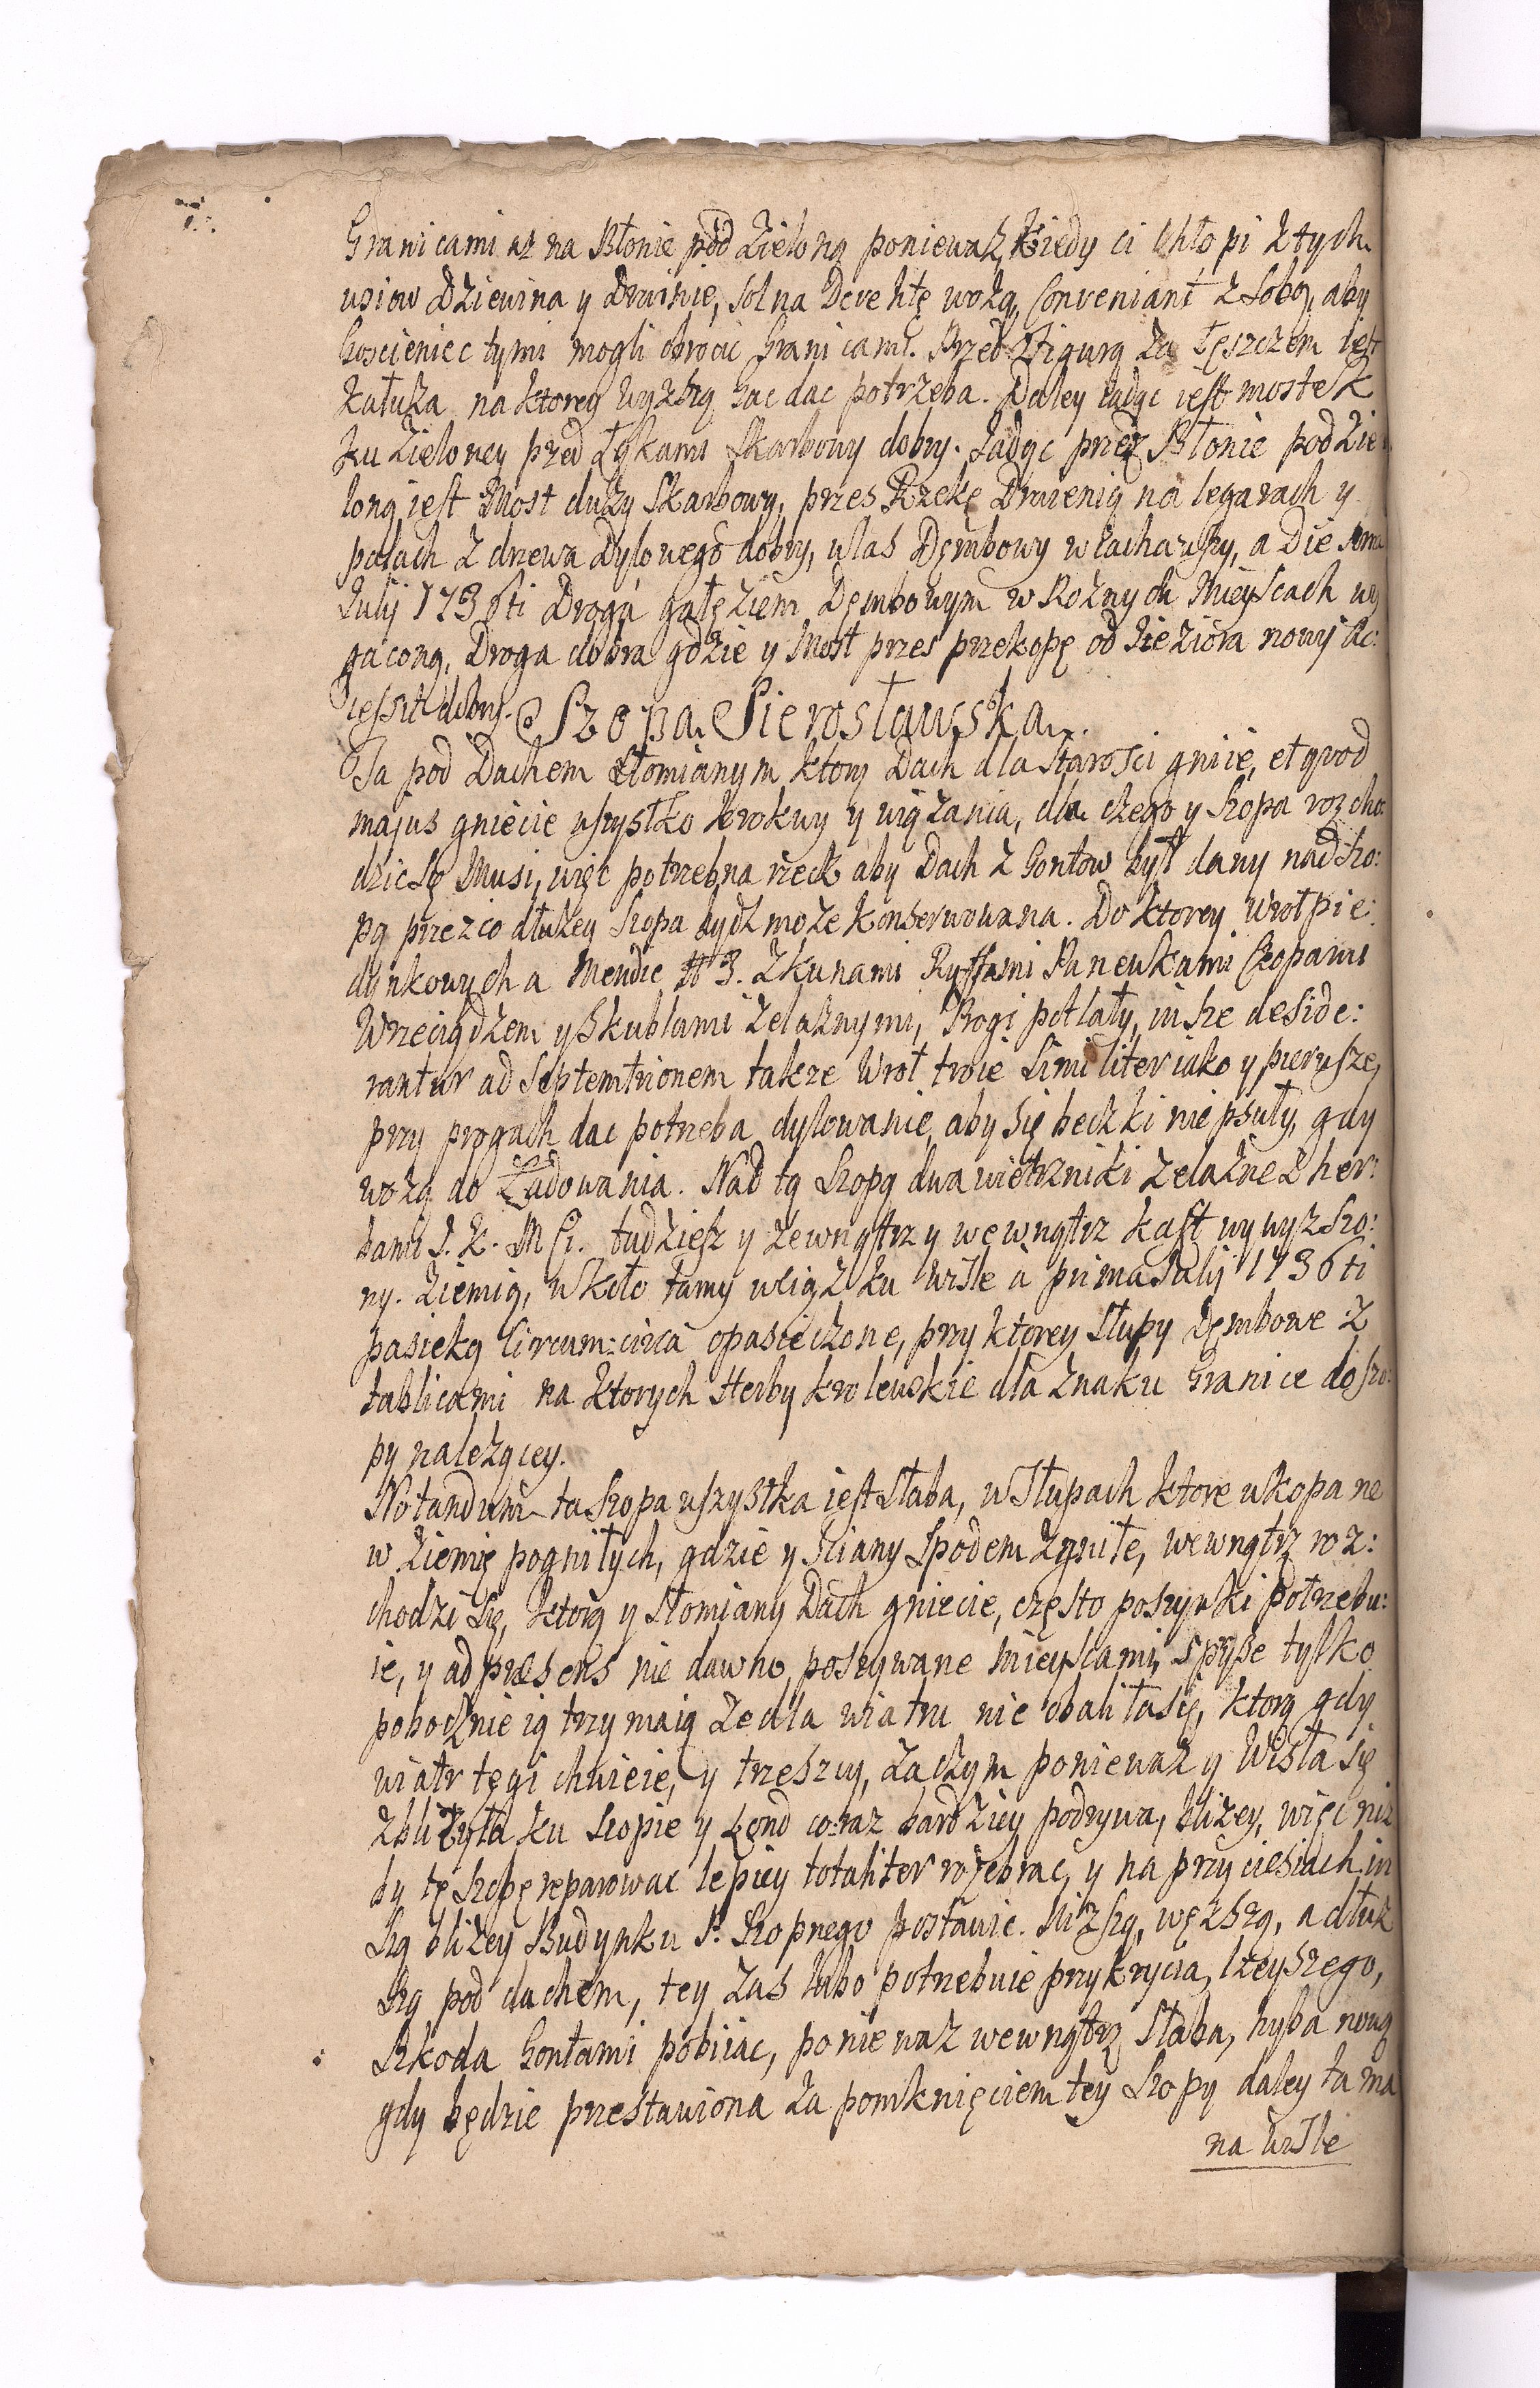 Granicami az na Błonie pod Zieloną poniewasz kiedy ci Chłopi z tych
wsiow Dziewina y Drwinie, sol na Derehtę wożą, Conveniant z sobą, aby
Goscieniec tymi mogli obrocic Granicami. Przed Figurą za Tęszczem iest
kałuża na ktorey wyższą gac dac potrzeba. Daley iadąc iest mostek
ku Zieloney przed Łąkami Skarbowy dobry. Jadąc przez Błonie pod Zie
loną iest Most duży Skarbowy, przes Rzekę Drwienią na legarach y
palach z drzewa Dylowego dobry, w las Dęmbowy w łachawszy, a Die
Julij 1736ti Droga gałęziem Dęmbowym w Roznych Mieyscach wy
gaconą, Droga dobra gdzie y Most przes przekopę od Jeziora nowy
iesst dobry. Szopa Sierosławska.
Ta pod Dachem Słomianym ktory Dach dla starosci gniie, et quod
majus gniecie wszystko krokwy y wiązania, dla czego y Szopa rozcho:
dzic Się Musi, więc potrzebna rzecz aby Dach z Gontow był dany nad Szo:
pą przez co dłużey Szopa bydz może konserwowana. Do ktorey wrot pie:
dynkowych a Meridie N 3. z kunami Ryffami Panewkami Czopami
Wrzeciądzem y Skublami żelaznymi, Progi potlały, insze deside:
rantur ad Septemtrionem także Wrot troie Similiter iako y pierwsze,
przy progach dac potrzeba dylowanie, aby się beczki nie psuły, gdy
wożą do Ładowania. Nad tą Szopą dwa wietrzniki żelazne z her:
bami J. K. Mci. tudziesz y zewnątrz y wewnątrz kaszt wywyzszo:
ny. Ziemią, w koło tamy wciąż ku Wiśle a prima Julij 1736ti
pasieką Circum:circa opasieczone, przy ktorey Słupy Dęmbowe z
tablicami na ktorych Herby krolewskie dla znaku Granice do szo:
py należącey.
Notandum ta Szopa wszystka iest Słaba, w Słupach ktore wkopane
w Ziemię pogniłych, gdzie y Sciany Spodem zgniłe, wewnątrz roz:
chodzi Się, ktorą y Słomiany Dach gniecie, często poszywki potrzebu:
ie, y ad præsens nie dawno poszywane Mieyscami, spyże tylko
pobocznie ią trzymaią że dla wiatru nie obaliła się, ktorą gdy
wiatr tęgi chwieie, y trzeszczy, Zaczym poniewaz y Wisła się
zbliżyła ku Szopie y Lond co:raz bardziey podrywa, bliżey, więc niz
by tę szopę reparowac lepiey totaliter rozebrac, y na przyciesiach in
szą bliżey Budynku P. Szopnego postawic. Niższą, węższą, a dłuż
szą pod dachem, tey zas lubo potrzebuie przykrycia, lżeyszego,
szkoda Gontami pobiiac, poniewaz wewnątrz Słaba, hyba nową
gdy będzie przestawiona za pomknięciem tey Szopy daley tama
na Wiśle